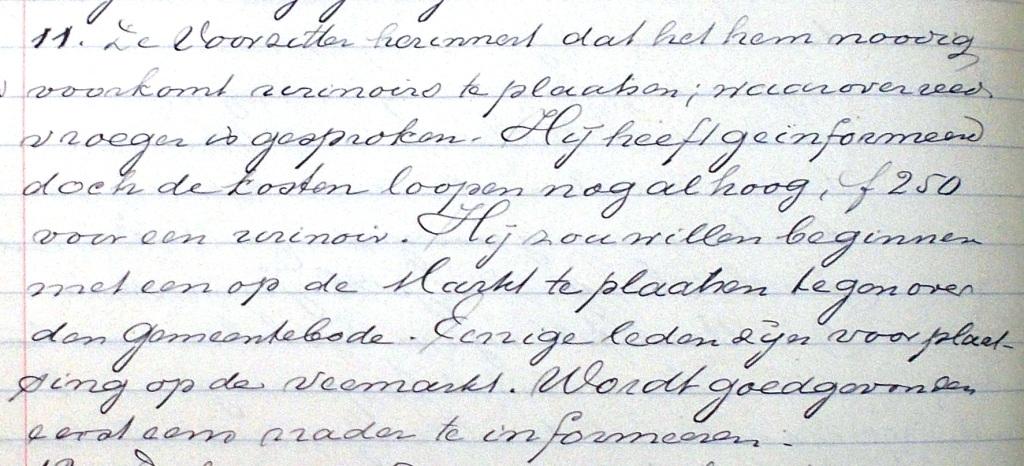 11. De Voorzitter herinnert dat het hem noodig
voorkomt urinoirs te plaatsen; waarover reeds
vroeger is gesproken. Hij heeft geïnformeerd
doch de kosten loopen nog al hoog, f 250
voor een urinoir. Hij zou willen beginnen
met een op de Markt te plaatsen tegenover
den Gemeentebode. Eenige leden zijn voor plaat-
sing op de Veemarkt. Wordt goedgevonden
eerst eens nader te informeeren.